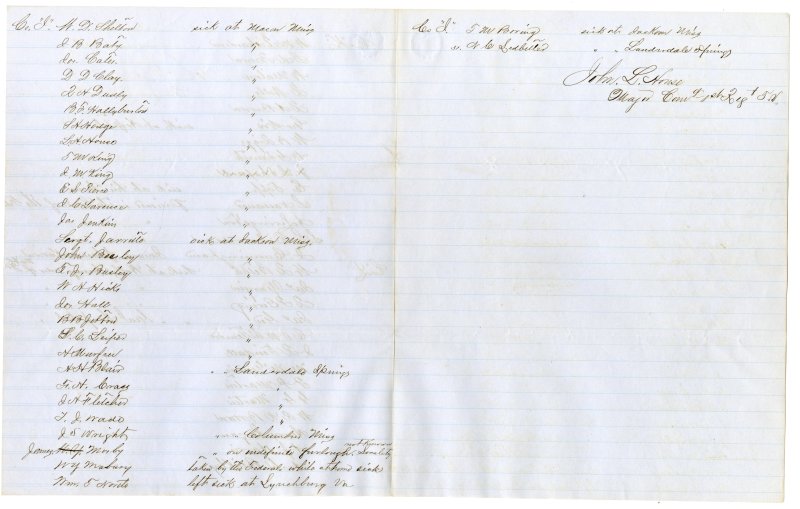 Co. "I" M. D. Shelton sick at Macon Miss
J B Baty "
Jos. Cates "
D D Clay "
R H Dudly "
B. F. Hallyburton "
S H Hodge "
L H House "
T M King "
J. M King "
E S Pierce "
J C Lawrence "
Jas Jenkin "
Sergt. Jarratt sick at Jackson Miss
John Beesley "
F. J. Beesley "
W A Hicks "
Jos Hall "
B B Jetton "
"
A Murfree "
A H Blair " " Lauderdale Springs
F. A. Cragg "
J A Fletcher "
T. J. Wade "
J S Wright " " Columbus Miss
James Mosby " on indefinite furlough, not known Locality
W Y Mabury taken by the Federals while at home sick
Wm T North left sick at Lynchburg Va
Co "I" T M Boring sick at Jackson Miss
" N C Ledbetter " " Lauderdale Springs
John L. House
Major Com'g 1st Reg't